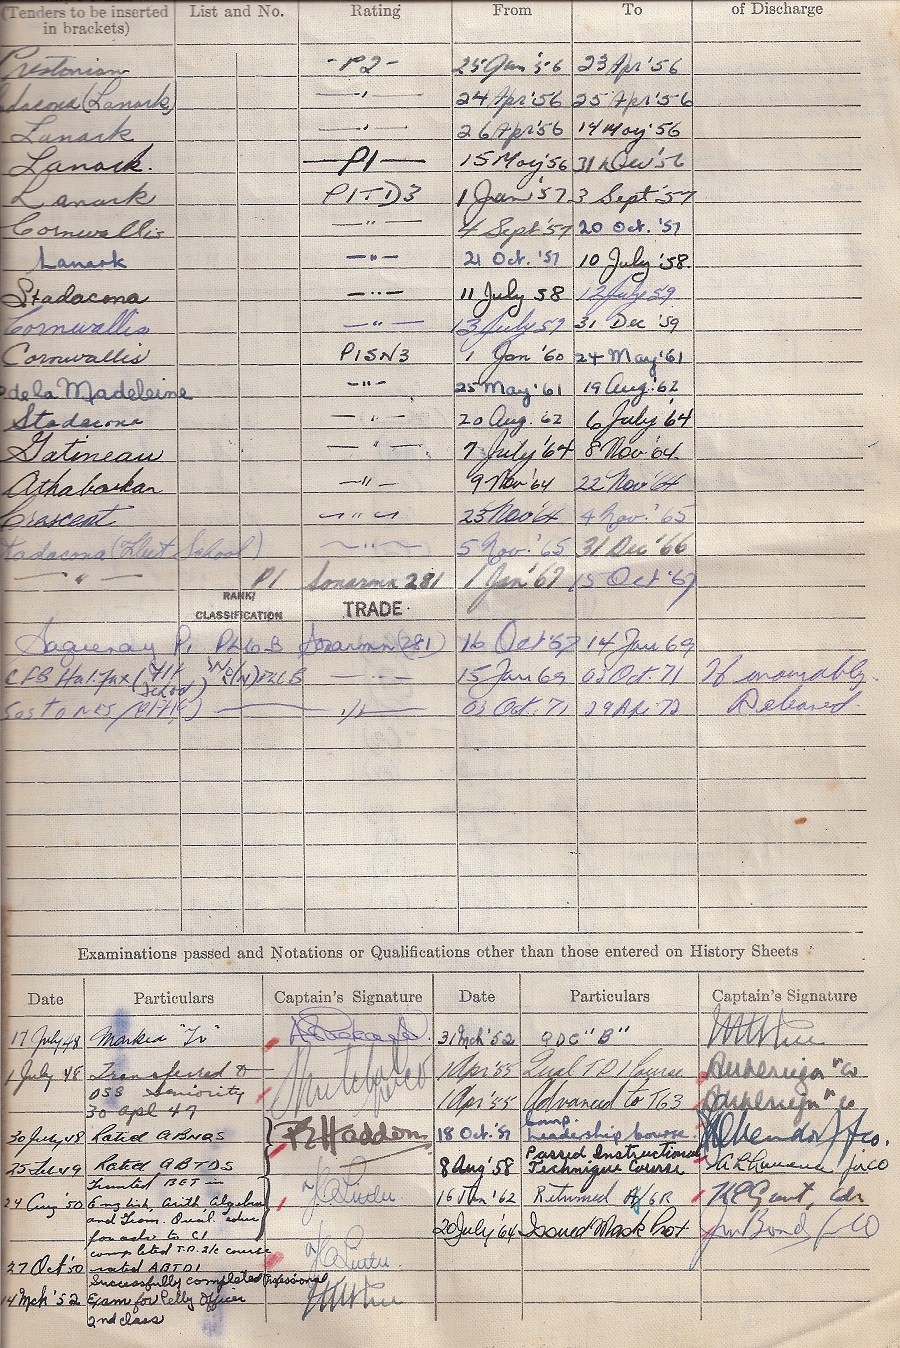 (Tenders to be inserted in brackets) List and No. Rating From To of Discharge
Prestonian - P2 - 25 Jan '56 23 Apr '56
(Lanark) — " — 24 Apr '56 25 Apr '56
Lanark — " — 26 Apr '56 14 May '56
Lanark. — P1 — 15 May '56 31 Dec '56
Lanark P1TD3 1 Jan '57 3 Sept '57
Cornwallis — " — 4 Sept '57 20 Oct. '57
Lanark — " — 21 Oct. '57 10 July '58.
Stadacona — " — 11 July 58 12 July 59.
Cornwallis — " — 13 July 59 31 Dec '59
Cornwallis P1SN3 1 Jan '60 24 May '61
de la Madeleine — " — 25 May '61 19 Aug. '62
Stadacona — " — 20 Aug. '62 6 July '64
Gatineau — " — 7 July '64 8 Nov '64.
Athabaskan — " — 9 Nov '64 22 Nov '64
Crescent — " — 23 Nov '64 4 Nov. '65
tadacona (Fleet School) — " — 5 Nov. '65 31 Dec '66
— " — P1 Sonarmn 281 1 Jan '67 15 Oct '67
RANK/ CLASSIFICATION TRADE
Saguenay P1 PL6B Sonarmn (281) 16 Oct 67 14 Jan 69
CFB Halifax (Flt School) PL6B — " — 15 Jan 69 03 Oct. 71 Honourably
— " — 03 Oct. 71 29 Apr 72 Released.
Examinations passed and Notations or Qualifications other than those entered on History Sheets
Date Particulars Captain's Signature Date Particulars Captain's Signature
17 July '48 Marked "Tr"
1 July '48 Transferred to
OSS Seniority
30 apl 47
30 July '48 Rated ABNQS P R Haddon
25 49 Rated ABTDS
Granted BET in
24 Aug '50 English, Arith Algebra
and Trom. Qual. educ
for adv. to C1
completed T.D. 2/c course
27 Oct '50 rated ABTD1
Successfully completed Professional
14 Mch '52 Exam for Petty Officer
2nd class
31 Mch '52 QDC "B"
1 Apr '55 Qual TD1 Course
1 Apr '55 Advanced to TG3
18 Oct. '57 Comp. Leadership Course.
8 Aug '58 Passed Instructional Technique Course
16 Jan '62 Returned A/6R K E Grant, Cdr
20 July '64 Issued Mask Prot Bond